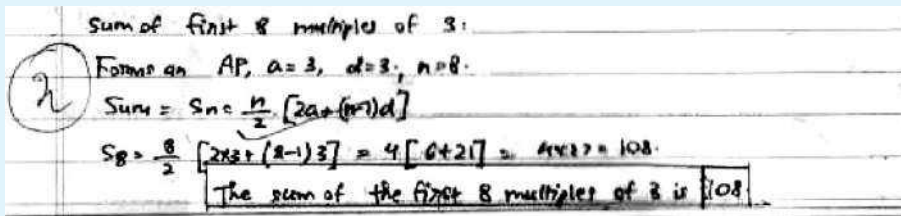 Sum of first 8 multiples of 3:
Forms an AP, a = 3, d = 3, n = 8.
Sum = Sn = n/2 [2a + (n-1)d]
S8 = 8/2 [2x3 + (8-1)3] = 4[6+21] = 4x27 = 108.
The sum of the first 8 multiples of 3 is 108